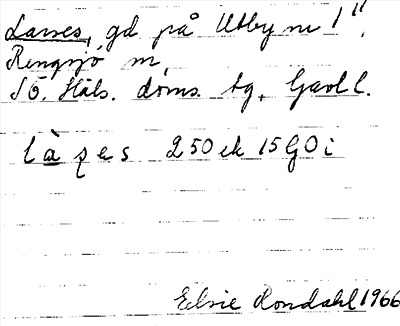 Larses, gd på Utby nr 1",
Rengsjö sn,
SÖ. Häls. doms. tg, Gävl l.
làṣes 250 ek 15G0i
Elsie Rondahl 1966